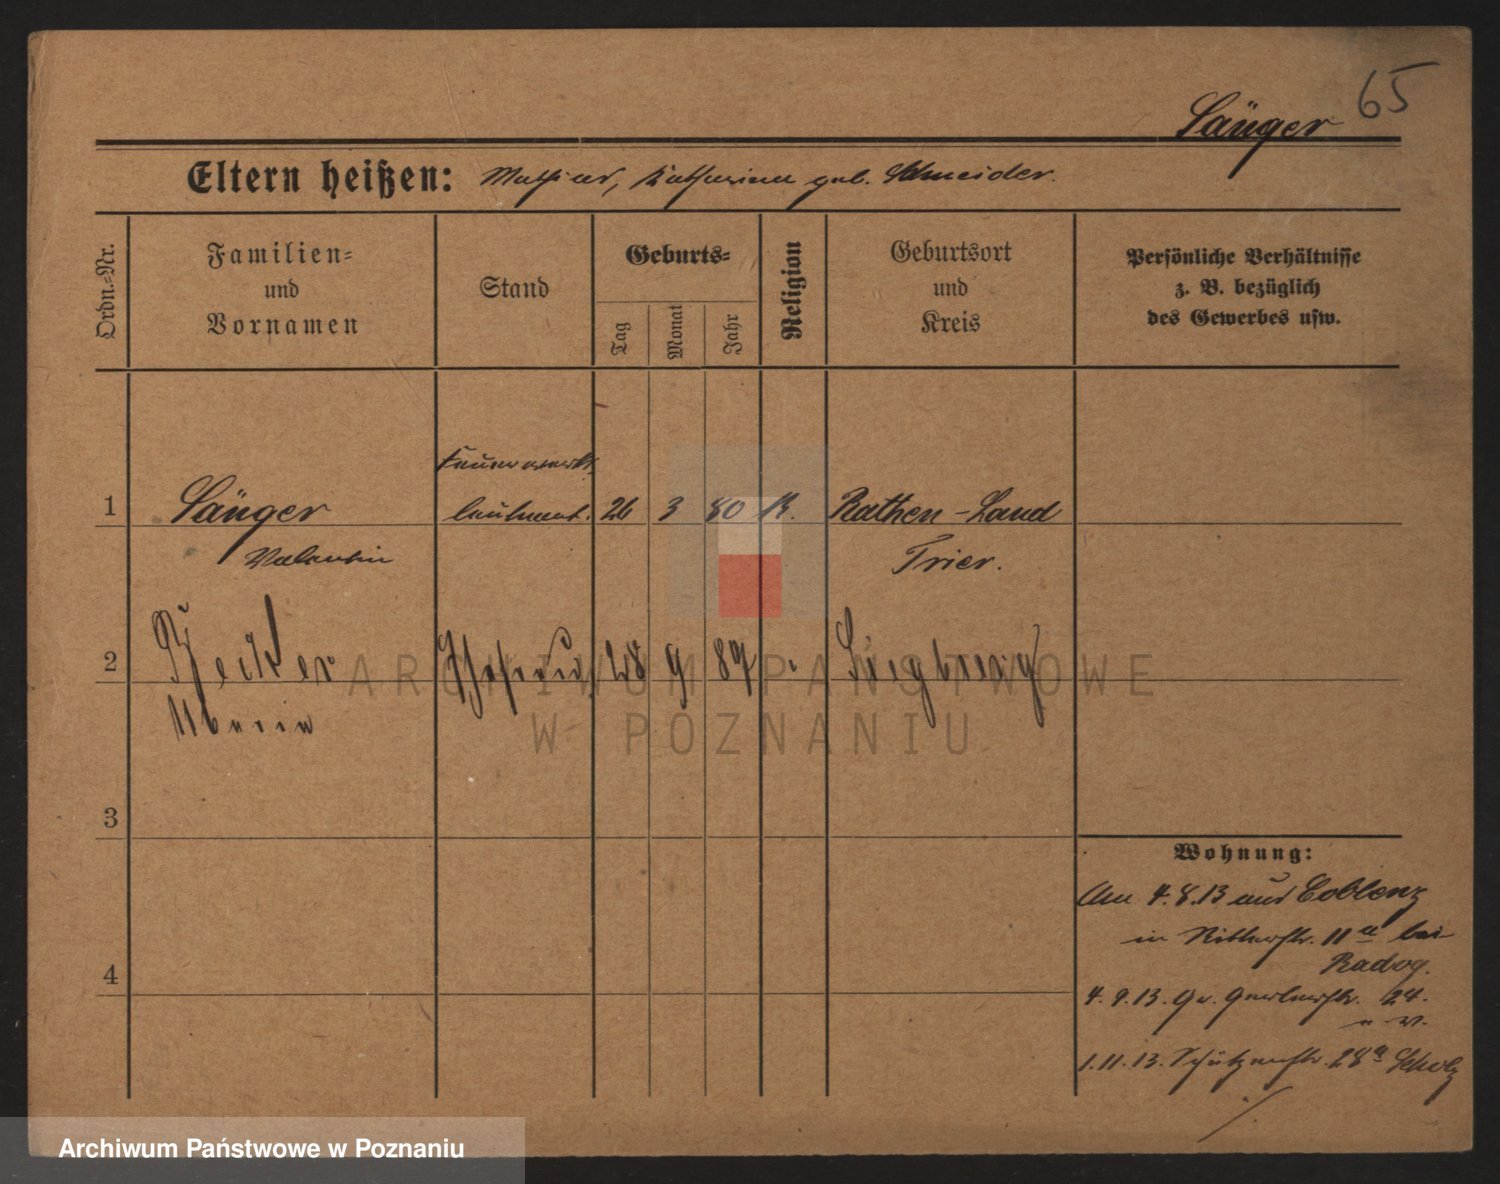 65
Sänger
Eltern heißen: Mathias, Katharina geb. Schneider.
Ordn.-Nr.
Familien-
und
Vornamen
Stand
Geburts-
Tag
Monat
Jahr
Religion
Geburtsort
und
Kreis
Persönliche Verhältnisse
z. B. bezüglich
des Gewerbes usw.
Feuerwerks
1 Sänger leutnant. 26 3 80 K. Rathen-Land
Valentin Trier.
2 Becker 28 9 89 Siegburg
Maria
ARCHIWUM PAŃSTWOWE
W POZNANIU
3
4
Wohnung:
Am 4.8.13 aus Coblenz
in Ritterstr. 11a bei
Radog.
4.9.13. Gr. Gerberstr. 24.
1.11.13. Schützenstr. 28a Scholz
Archiwum Państwowe w Poznaniu